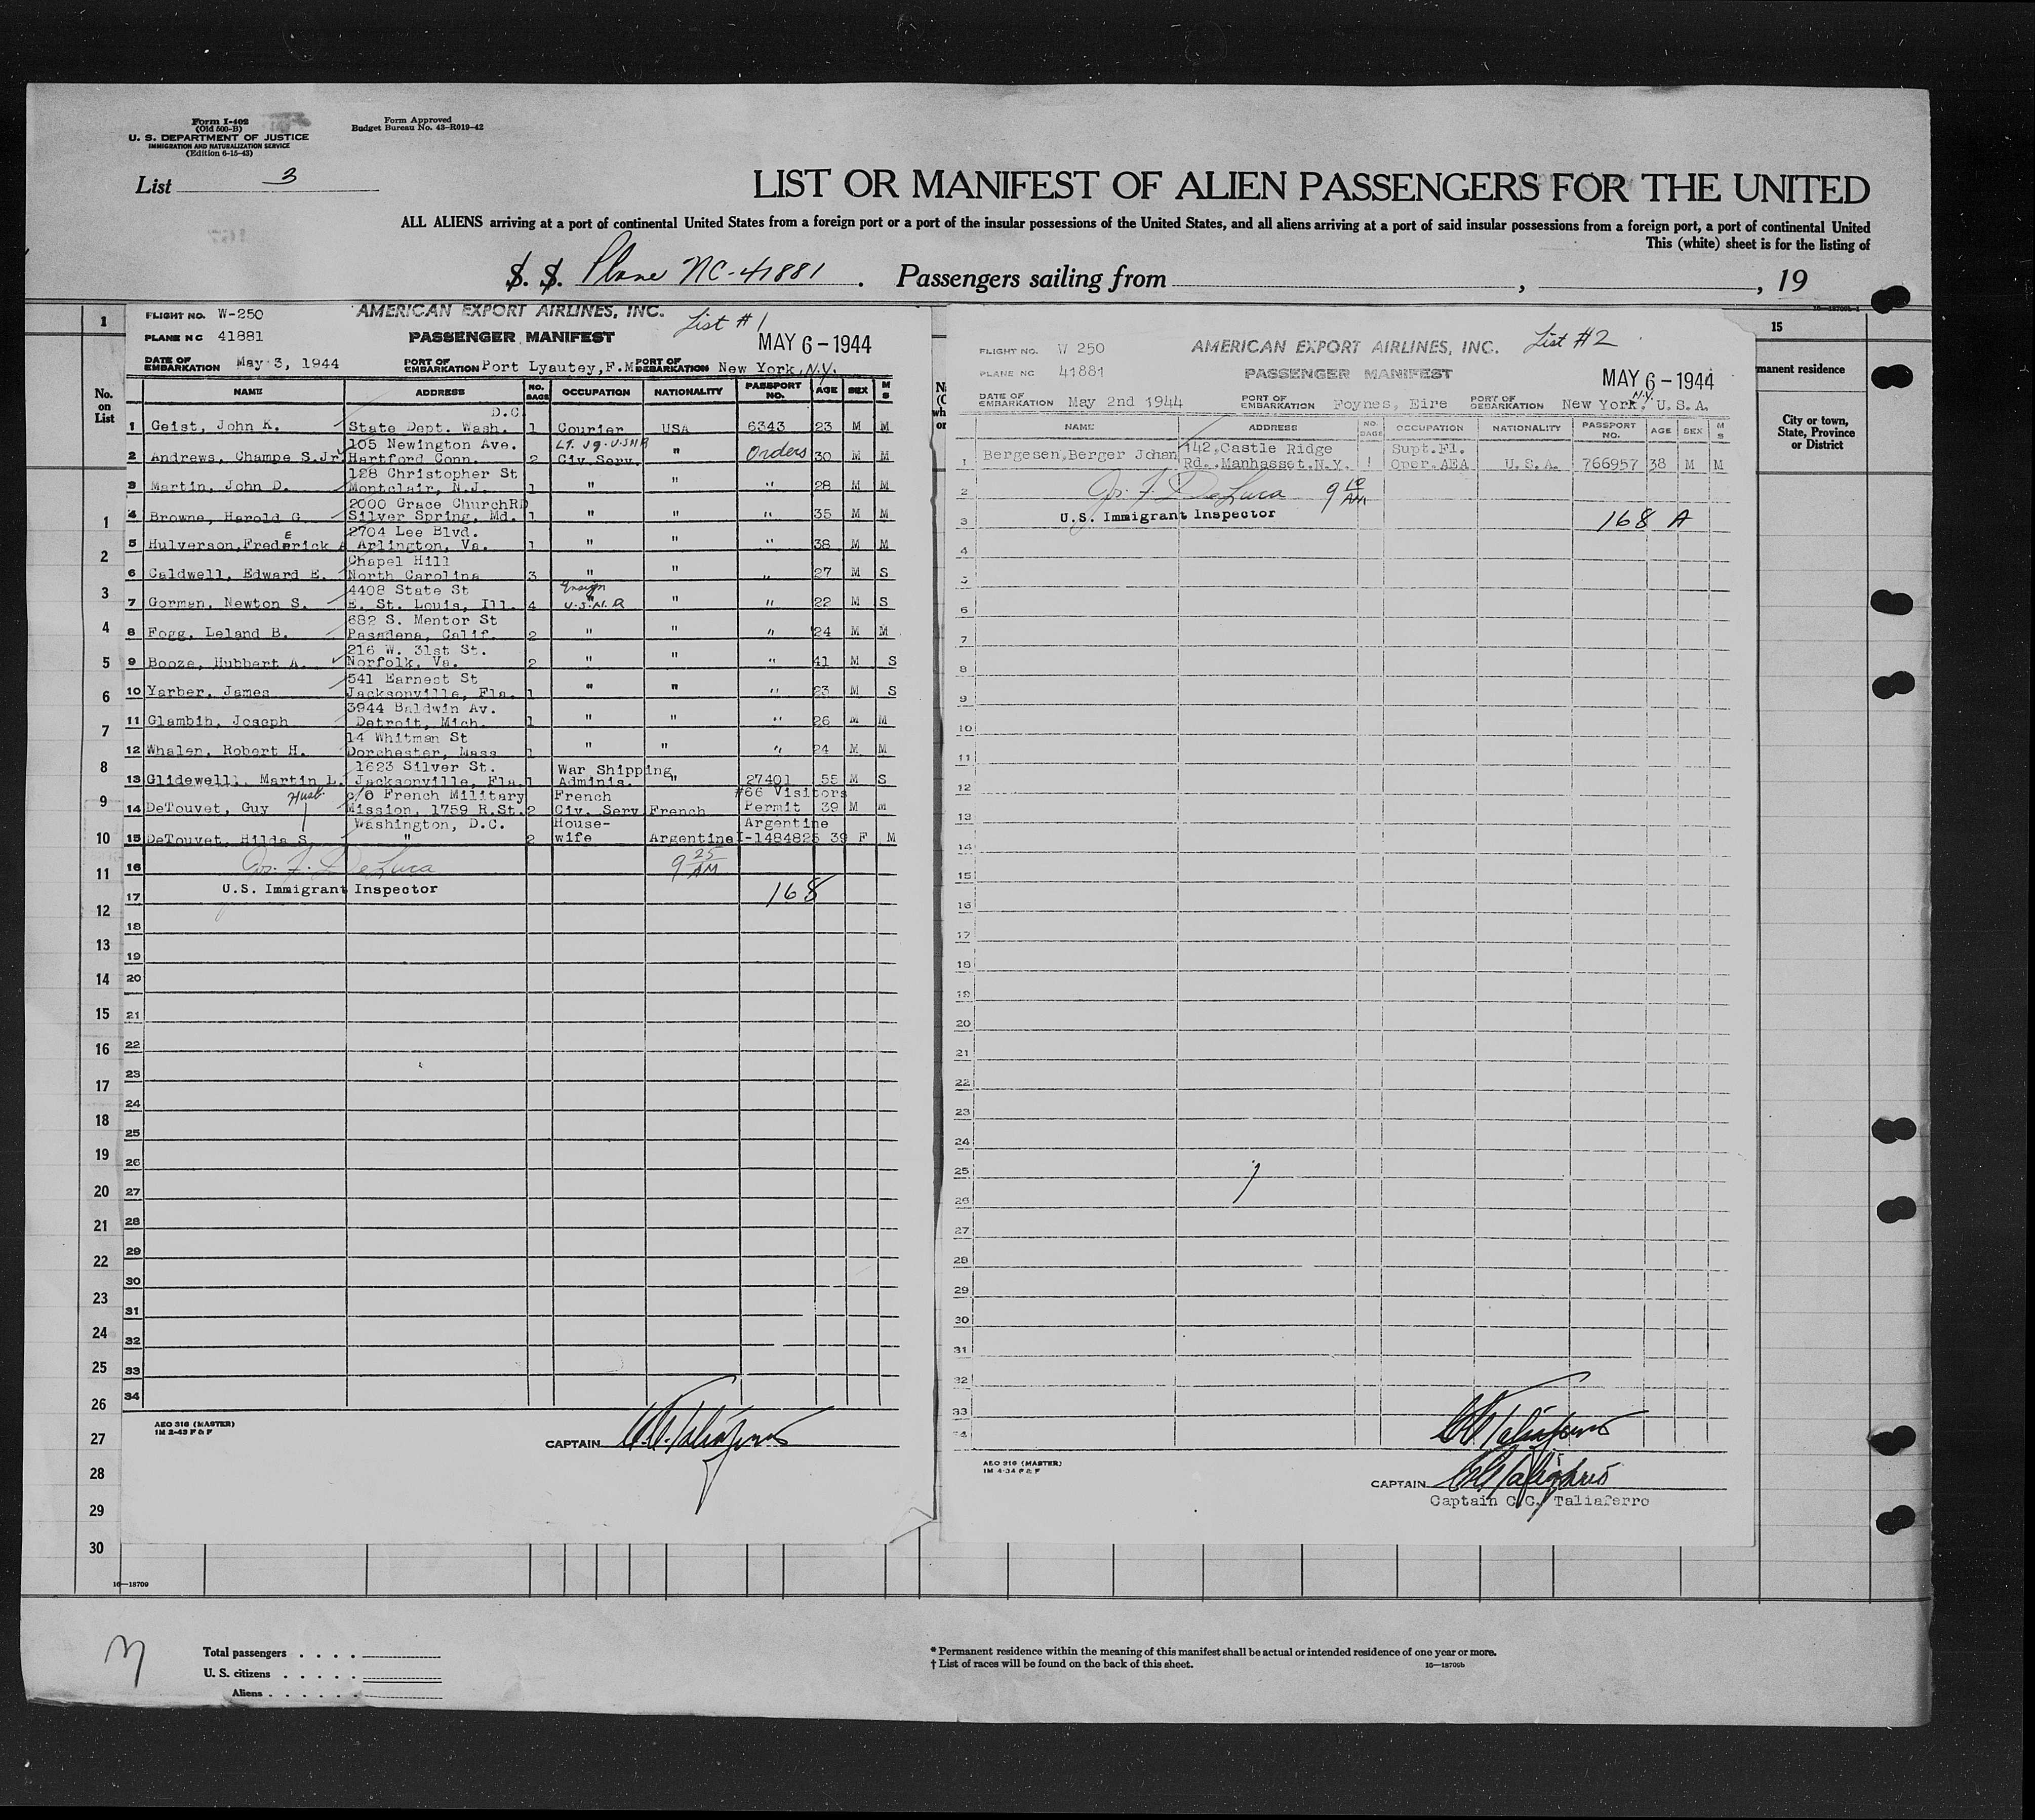 Form I-402
(Old 500-B)
U. S. DEPARTMENT OF JUSTICE
IMMIGRATION AND NATURALIZATION SERVICE
(Edition 6-15-43)
Form Approved
Budget Bureau No. 43-R019-42
List 3
LIST OR MANIFEST OF ALIEN PASSENGERS FOR THE UNITED
ALL ALIENS arriving at a port of continental United States from a foreign port or a port of the insular possessions of the United States, and all aliens arriving at a port of said insular possessions from a foreign port, a port of continental United
This (white) sheet is for the listing of
S. S. Plane NC-41881. Passengers sailing from , , 19
FLIGHT NO. W-250 AMERICAN EXPORT AIRLINES, INC. List #1
PLANE NC 41881 PASSENGER MANIFEST MAY 6-1944
DATE OF EMBARKATION May 3, 1944 PORT OF EMBARKATION Port Lyautey,F.M PORT OF DEBARKATION New York, N.Y.
NAME ADDRESS NO. BAGS OCCUPATION NATIONALITY PASSPORT NO. AGE SEX M S
D.C.
1 Geist, John K. State Dept. Wash. 1 Courier USA 6343 23 M M
105 Newington Ave. Lt. jg. U.S.N.R
2 Andrews, Champe S.Jr Hartford Conn. 2 Civ.Serv. " Orders 30 M M
128 Christopher St
3 Martin, John D. Montclair, N.J. 1 " " " 28 M M
2000 Grace ChurchRD
4 Browne, Harold G. Silver Spring, Md. 1 " " " 35 M M
2704 Lee Blvd.
5 Hulverson,Frederick A Arlington, Va. 1 " " " 38 M M
Chapel Hill
6 Caldwell, Edward E. North Carolina 3 " " " 27 M S
4408 State St Ensign
7 Gorman, Newton S. E. St. Louis, Ill. 4 U.S.N.R " " 22 M S
682 S. Mentor St
8 Fogg, Leland B. Pasadena, Calif. 2 " " " 24 M M
216 W. 31st St.
9 Booze, Hubbert A. Norfolk, Va. 2 " " " 41 M S
541 Earnest St
10 Yarber, James Jacksonville, Fla. 1 " " " 23 M S
3944 Baldwin Av.
11 Glambin, Joseph Detroit, Mich. 1 " " " 26 M M
14 Whitman St
12 Whalen, Robert H. Dorchester, Mass 1 " " " 24 M M
1623 Silver St. War Shipping
13 Glidewell, Martin L. Jacksonville, Fla. 1 Adminis. " 27401 55 M S
Husb. c/o French Military French #66 Visitors
14 DeTouvet, Guy Mission, 1759 R.St. 2 Civ. Serv French Permit 39 M M
Washington, D.C. House- Argentine
15 DeTouvet, Hilda S " 2 wife Argentine I-1484825 39 F M
16 Jos. F. DeLuca 9 25 AM
17 U.S. Immigrant Inspector 168
18
19
20
21
22
23
24
25
26
27
28
29
30
31
32
33
34
AEO 316 (MASTER)
1M 2-43 P & F
CAPTAIN C.C. Taliaferro
FLIGHT NO. W 250 AMERICAN EXPORT AIRLINES, INC. List #2
PLANE NC 41881 PASSENGER MANIFEST MAY 6-1944
DATE OF EMBARKATION May 2nd 1944 PORT OF EMBARKATION Foynes, Eire PORT OF DEBARKATION New York, N.Y. U.S.A.
NAME ADDRESS NO. BAGS OCCUPATION NATIONALITY PASSPORT NO. AGE SEX M S
142,Castle Ridge Supt.Fl.
1 Bergesen,Berger Johan Rd. Manhasset.N.Y. 1 Oper.AEA U.S.A. 766957 38 M M
2 Jos. F. DeLuca 9 10 AM
3 U.S. Immigrant Inspector 168 A
4
5
6
7
8
9
10
11
12
13
14
15
16
17
18
19
20
21
22
23
24
25
26
27
28
29
30
31
32
33
34
C.C. Taliaferro
AEO 316 (MASTER)
1M 4-34 P & F
CAPTAIN C.C. Taliaferro
Captain C.C. Taliaferro
15
manent residence
City or town,
State, Province
or District
No.
on
List
1
1
2
3
4
5
6
7
8
9
10
11
12
13
14
15
16
17
18
19
20
21
22
23
24
25
26
27
28
29
30
16—18709
Total passengers . . . .
U. S. citizens . . . . .
Aliens . . . . . .
* Permanent residence within the meaning of this manifest shall be actual or intended residence of one year or more.
† List of races will be found on the back of this sheet.
16—18709b